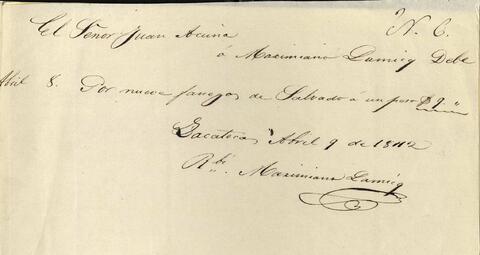 El Señor Juan Acuña N. 6.
á Maximiano Debe
Abril 8. Por nueve fanegas de Salvado á un peso $9. "
Zacatecas Abril 9 de 1842
Rbí. Maximiano